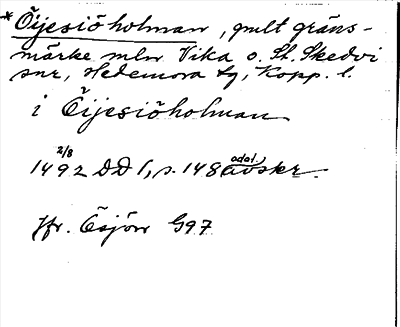 *Öijesiöholman, gmlt gräns-
märke mln Vika o. St. Skedvi
snr, Hedemora tg, Kopp. l.
i Öijesiöholman
1492 2/8 DD 1, s. 148 odat. avskr.
Jfr. Ösjön G97